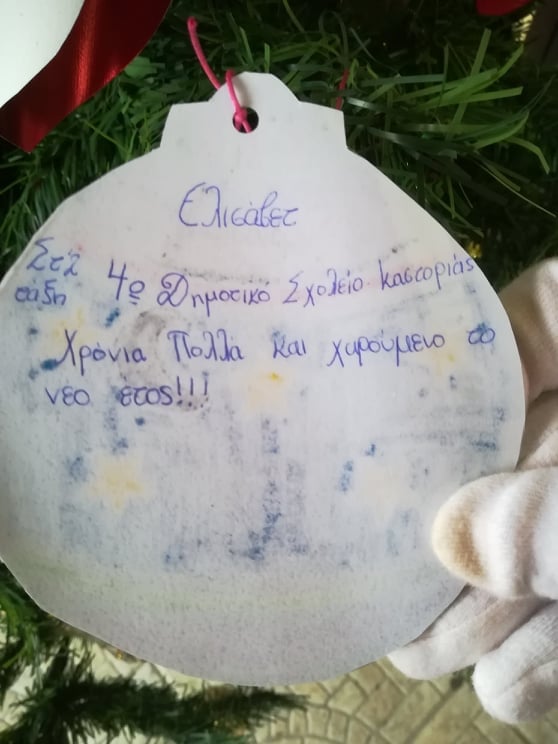 Ελισάβετ
Στ2 4ο Δημοτικό Σχολείο Καστοριάς
τάξη
Χρόνια Πολλά και χαρούμενο το
νεο ετος!!!